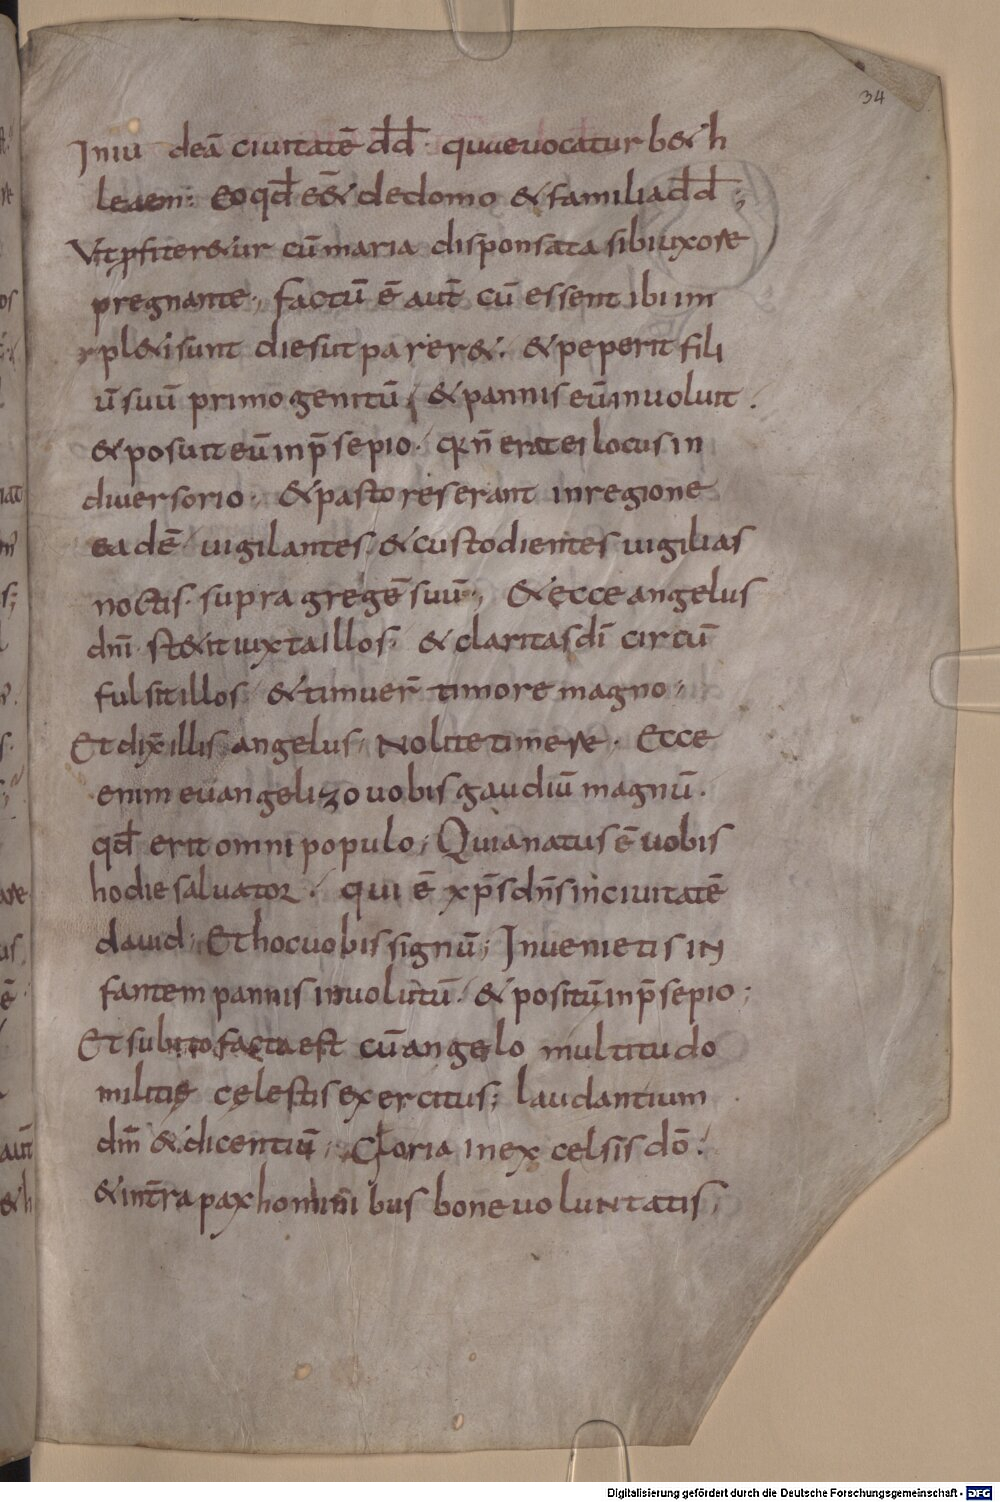 34
Iniu deā ciuitatē dd̄. quae uocatur b&h
leaem; eo qd̄ eēt de domo & familia dd̄;
Vt ꝓfiter&ur cū maria disponsata sibi uxore
pregnante. factū ē aut̄ cū essent ibi im
pl&i sunt dies ut parer&. & peperit fili
ū suū primogenitū, & pannis eū inuoluit.
& posuit eū in p̄sepio. qr̄ n̄ erat ei locus in
diuersorio. & pastores erant in regione
eadē uigilantes. & custodientes uigilias
noctis. supra gregē suū; & ecce angelus
dn̄i st&it iuxta illos. & claritas dī circū
fulsit illos. & timuer̄ timore magno;
Et dix̄ illis angelus. Nolite timere. Ecce
enim euangelizo uobis gaudiū magnū.
qd̄ erit omni populo; Quia natus ē uobis
hodie saluator. qui ē xp̄s dn̄s in ciuitatē
dauid; Et hoc uobis signū; Inuenietis in
fantem pannis inuolutū. & positū in p̄sepio;
Et subito facta est cū angelo multitudo
militię cęlestis exercitus; laudantium
dm̄ & dicentiū; Gloria in excelsis dō.
& in t̄ra pax hominibus bone uoluntatis;
Digitalisierung gefördert durch die Deutsche Forschungsgemeinschaft - DFG